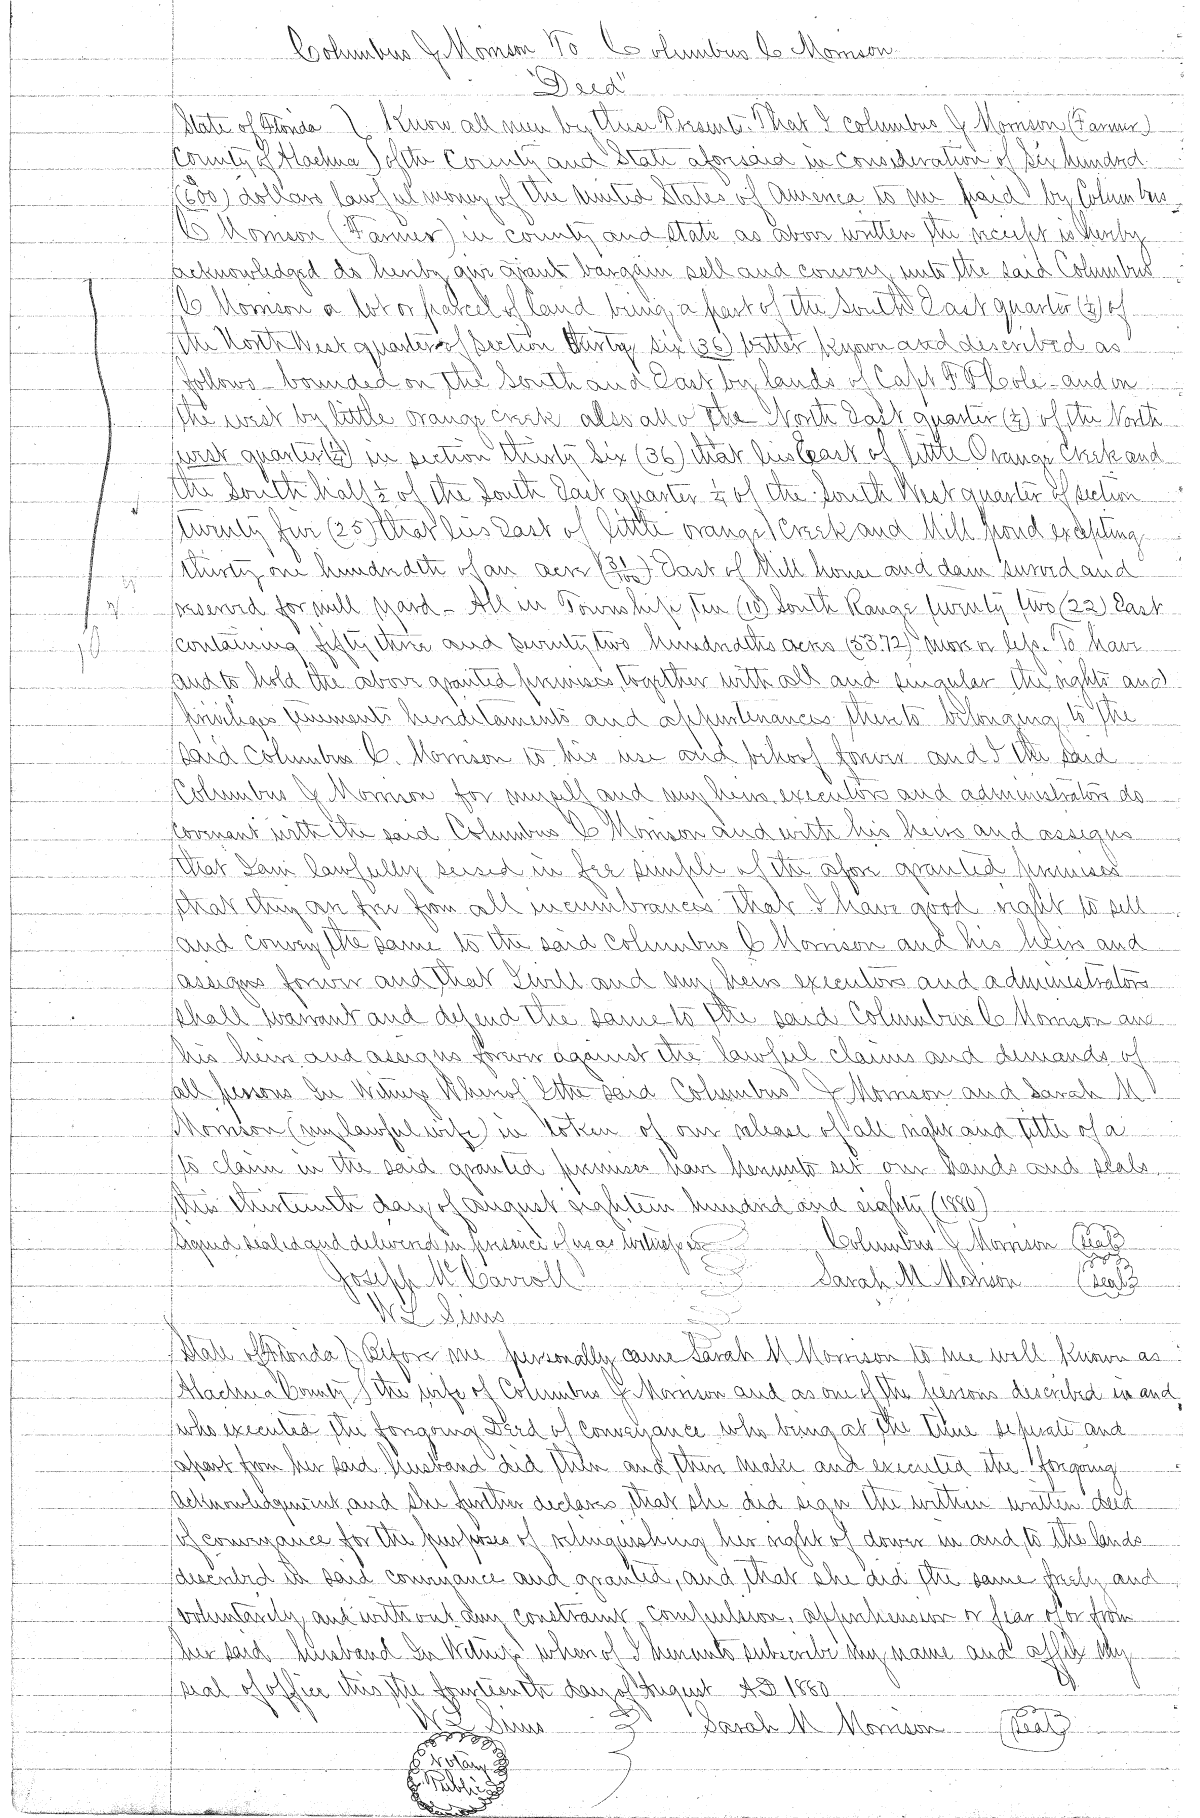 Columbus J Morrison To Columbus C Morrison
"Deed"
State of Florida } Know all men by these Presents. That I columbus J Morrison (Farmer)
County of Alachua } of the County and State aforsaid in consideration of Six hundred
(600) dollars lawful money of the United States of America to me paid by Columbus
C Morrison (Farmer) in county and state as above written the receipt is hereby
acknowledged do hereby give grant bargain sell and convey unto the said Columbus
C Morrison a lot or parcel of land being a part of the South East quarter (¼) of
the North West quarter of section thirty six (36) better known and described as
follows - bounded on the South and East by lands of Capt F P Cole - and on
the west by little orange creek also all o the North East quarter (¼) of the North
west quarter (¼) in section thirty Six (36) that lies East of little Orange Creek and
the South half ½ of the South East quarter ¼ of the South West quarter of section
twenty five (25) that lies East of little orange Creek and Mill pond excepting
thirty one hundredth of an acre (31/100) East of Mill house and dam surved and
reserved for mill yard - All in Township Ten (10) South Range twenty two (22) East
containing fifty three and seventy two hundredths acres (53.72) more or less. To have
and to hold the above granted premises, together with all and singular the rights and
privileges tenements hereditaments and appurtenances thereto belonging to the
said Columbus C. Morrison to his use and behoof forever and I the said
Columbus J Morrison for myself and my heirs, executors and administrators do
covenant with the said Columbus C Morrison and with his heirs and assigns
that I am lawfully seised in fee simple of the afore granted premises
that they are free from all incumbrances that I have good right to sell
and convey the same to the said Columbus C Morrison and his heirs and
assigns forever and that I will and my heirs executors and administrators
shall warrant and defend the same to the said Columbus C Morrison and
his heirs and assigns forever against the lawful claims and demands of
all persons In Witness Whereof I the said Columbus J Morrison and Sarah M
Morrison (my lawful wife) in token of our release of all right and title of a
to claim in the said granted premises have hereunto set our hands and seals
this thirteenth day of august eighteen hundred and eighty (1880)
Signed sealed and delivered in presence of us as witnesses Columbus J Morrison (seal)
Joseph McCarroll Sarah M Morrison (seal)
W L Sims
State of Florida } Before me personally came Sarah M Morrison to me well known as
Alachua County } the wife of Columbus J Morrison and as one of the persons described in and
who executed the forgoing Deed of conveyance who being at the time seperate and
apart from her said husband did then and there make and executed the forgoing
Acknowledgment, and she further declares, that she did sign the within written deed
of conveyance for the purposes of relinquishing her right of dower in and to the lands
described in said conveyance and granted, and that she did the same freely and
voluntarily and without any constraint, compulsion, apprehension or fear of or from
her said husband In Witness whereof I hereunto subscribe my name and affix my
seal of office this the fourteenth day of August A D 1880
W L Sims Sarah M Morrison (seal)
Notary
Public